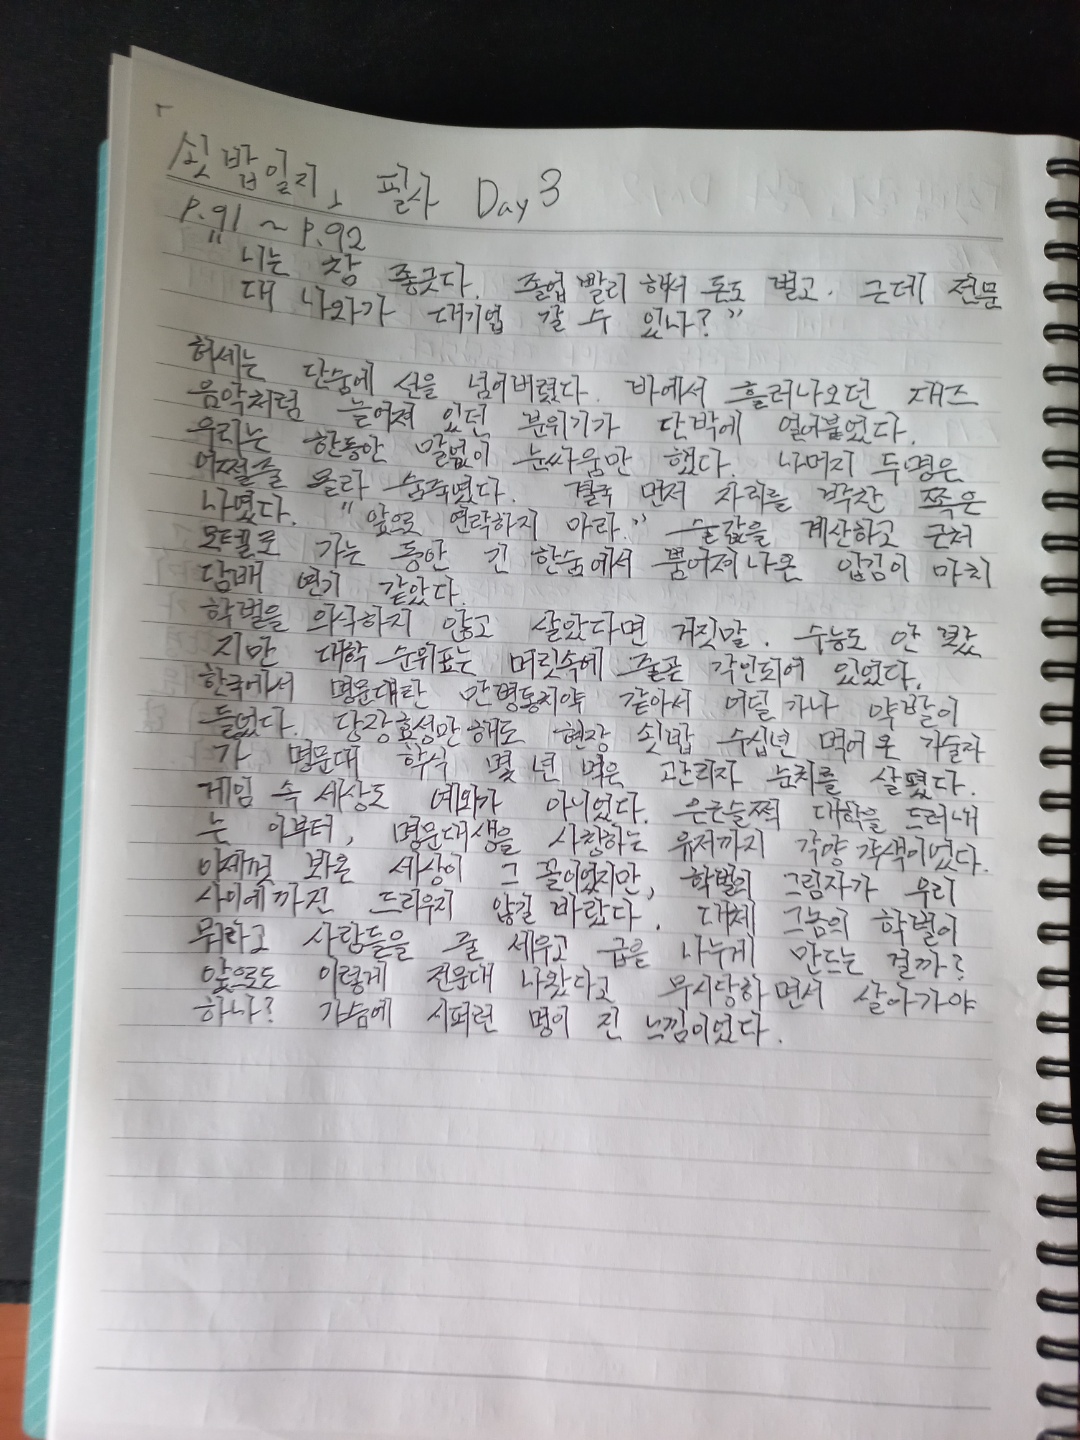 「쇳밥일지」 필사 Day 3
P.91 ~ P.92
"니는 참 좋긋다. 졸업 빨리 해서 돈도 벌고. 근데 전문
대 나와가 대기업 갈 수 있나?"
허세는 단숨에 선을 넘어버렸다. 바에서 흘러나오던 재즈
음악처럼 늘어져 있던 분위기가 단박에 얼어붙었다.
우리는 한동안 말없이 눈싸움만 했다. 나머지 두명은
어쩔줄 몰라 숨죽였다. 결국 먼저 자리를 박찬 쪽은
나였다. "앞으로 연락하지 마라." 술값을 계산하고 근처
모텔로 가는 동안 긴 한숨에서 뿜어져나온 입김이 마치
담배 연기 같았다.
학벌을 의식하지 않고 살았다면 거짓말. 수능도 안 봤
지만 대학 순위표는 머릿속에 줄곧 각인되어 있었다.
한국에서 명문대란 만병통치약 같아서 어딜 가나 약발이
들었다. 당장 효성만 해도 현장 쇳밥 수십년 먹어 온 기술자
가 명문대 학식 몇 년 먹은 관리자 눈치를 살폈다.
게임 속 세상도 예외가 아니었다. 은근슬쩍 대학을 드러내
는 이부터, 명문대생을 사칭하는 유저까지 각양각색이었다.
이제껏 봐온 세상이 그 꼴이었지만, 학벌의 그림자가 우리
사이에까진 드리우지 않길 바랐다. 대체 그놈의 학벌이
뭐라고 사람들을 줄 세우고 급을 나누게 만드는 걸까?
앞으로도 이렇게 전문대 나왔다고 무시당하면서 살아가야
하나? 가슴에 시퍼런 멍이 진 느낌이었다.